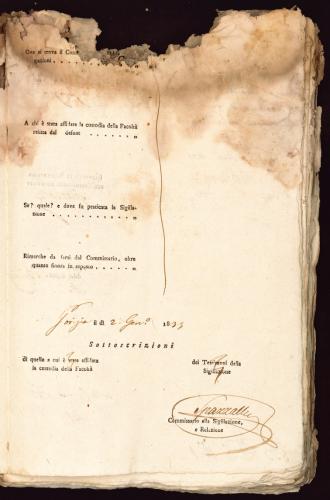 Ove si trova il
gazioni . . . . . . . . . . . „
A chi è stata affidata la custodia della Facoltà
relitta dal defont . . . . . . . „
Se? quale? e dove fu praticata la Sigilla-
zione . . . . . . . . . . . . „
Rimarche da farsi dal Commissario, oltre
quanto finora fu esposto . . . . . „
Gorizia il dì 2. Gen.º 1833
Sottoscrizioni
di quello a cui è stata affidata
la custodia della Facoltà
dei Testimoni della
Sigillazione
Commissario alla Sigillazione,
e Relazione